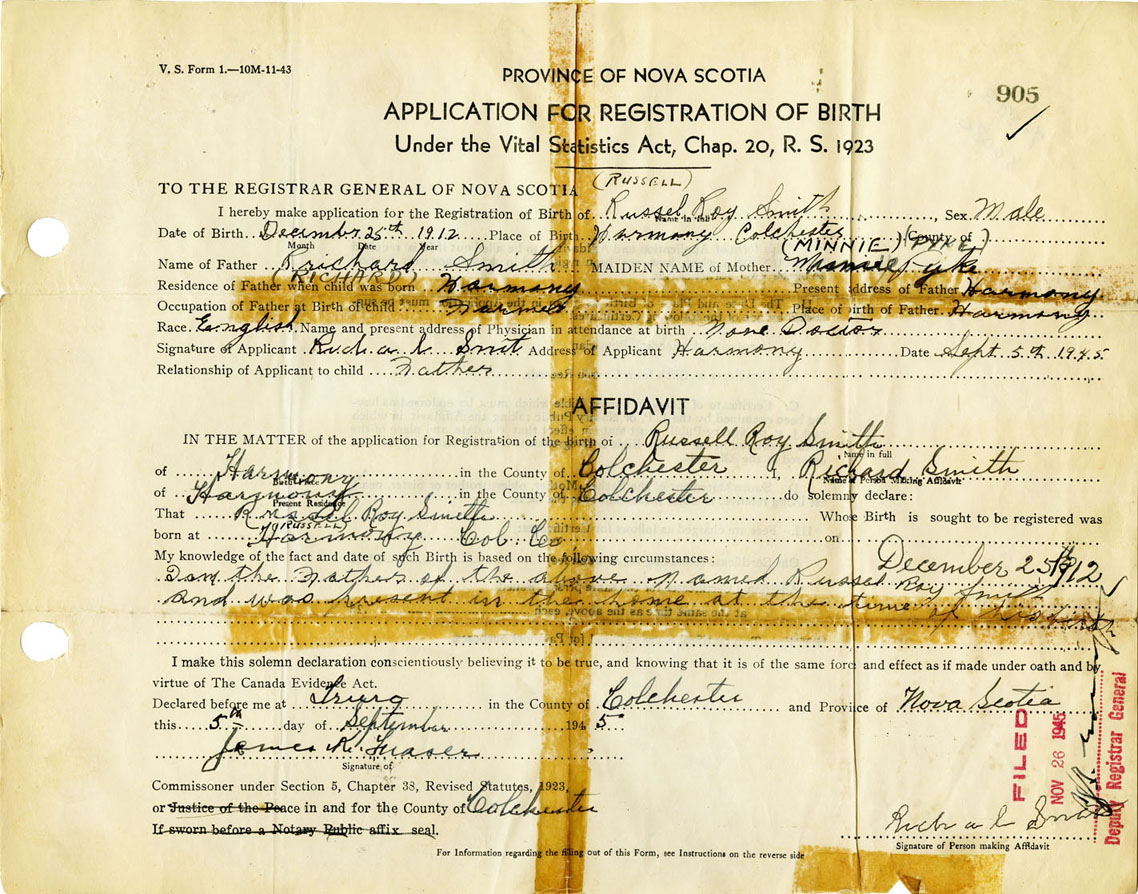 V. S. Form 1.—10M-11-43
PROVINCE OF NOVA SCOTIA
905
APPLICATION FOR REGISTRATION OF BIRTH
Under the Vital Statistics Act, Chap. 20, R. S. 1923
(RUSSELL)
TO THE REGISTRAR GENERAL OF NOVA SCOTIA
I hereby make application for the Registration of Birth of Russel Roy Smith, Sex Male
Name in full
Date of Birth December 25th 1912 Place of Birth Harmony Colchester (County of)
Month Date Year
(MINNIE PYKE)
Name of Father Richard Smith MAIDEN NAME of Mother Minnie Pyke
RICHARD
Residence of Father when child was born Harmony Present address of Father Harmony
Occupation of Father at Birth of child Farmer Place of birth of Father Harmony
Race English Name and present address of Physician in attendance at birth None Doctor
Signature of Applicant Richal Smit Address of Applicant Harmony Date Sept 5th 1945
Relationship of Applicant to child Father
AFFIDAVIT
IN THE MATTER of the application for Registration of the birth of Russell Roy Smith
Name in full
of Harmony in the County of Colchester I, Richard Smith
Birth Place
Name of Person Making Affidavit
of Harmony in the County of Colchester do solemny declare:
Present Residence
That Russel Roy Smith Whose Birth is sought to be registered was
(RUSSELL)
born at Harmony Col Co on December 25th 1912
My knowledge of the fact and date of such Birth is based on the following circumstances:
I am the Father of the above named Russel Roy Smith
and was present in the home at the time of
I make this solemn declaration conscientiously believing it to be true, and knowing that it is of the same force and effect as if made under oath and by
virtue of The Canada Evidence Act.
Declared before me at Truro in the County of Colchester and Province of Nova Scotia
this 5th day of September 1945
James K. Fraser
Signature of
Commissoner under Section 5, Chapter 38, Revised Statutes, 1923,
or Justice of the Peace in and for the County of Colchester
If sworn before a Notary Public affix seal.
Richal Smit
Signature of Person making Affidavit
FILED
NOV 26 1945
Deputy Registrar General
For Information regarding the filling out of this Form, see Instructions on the reverse side